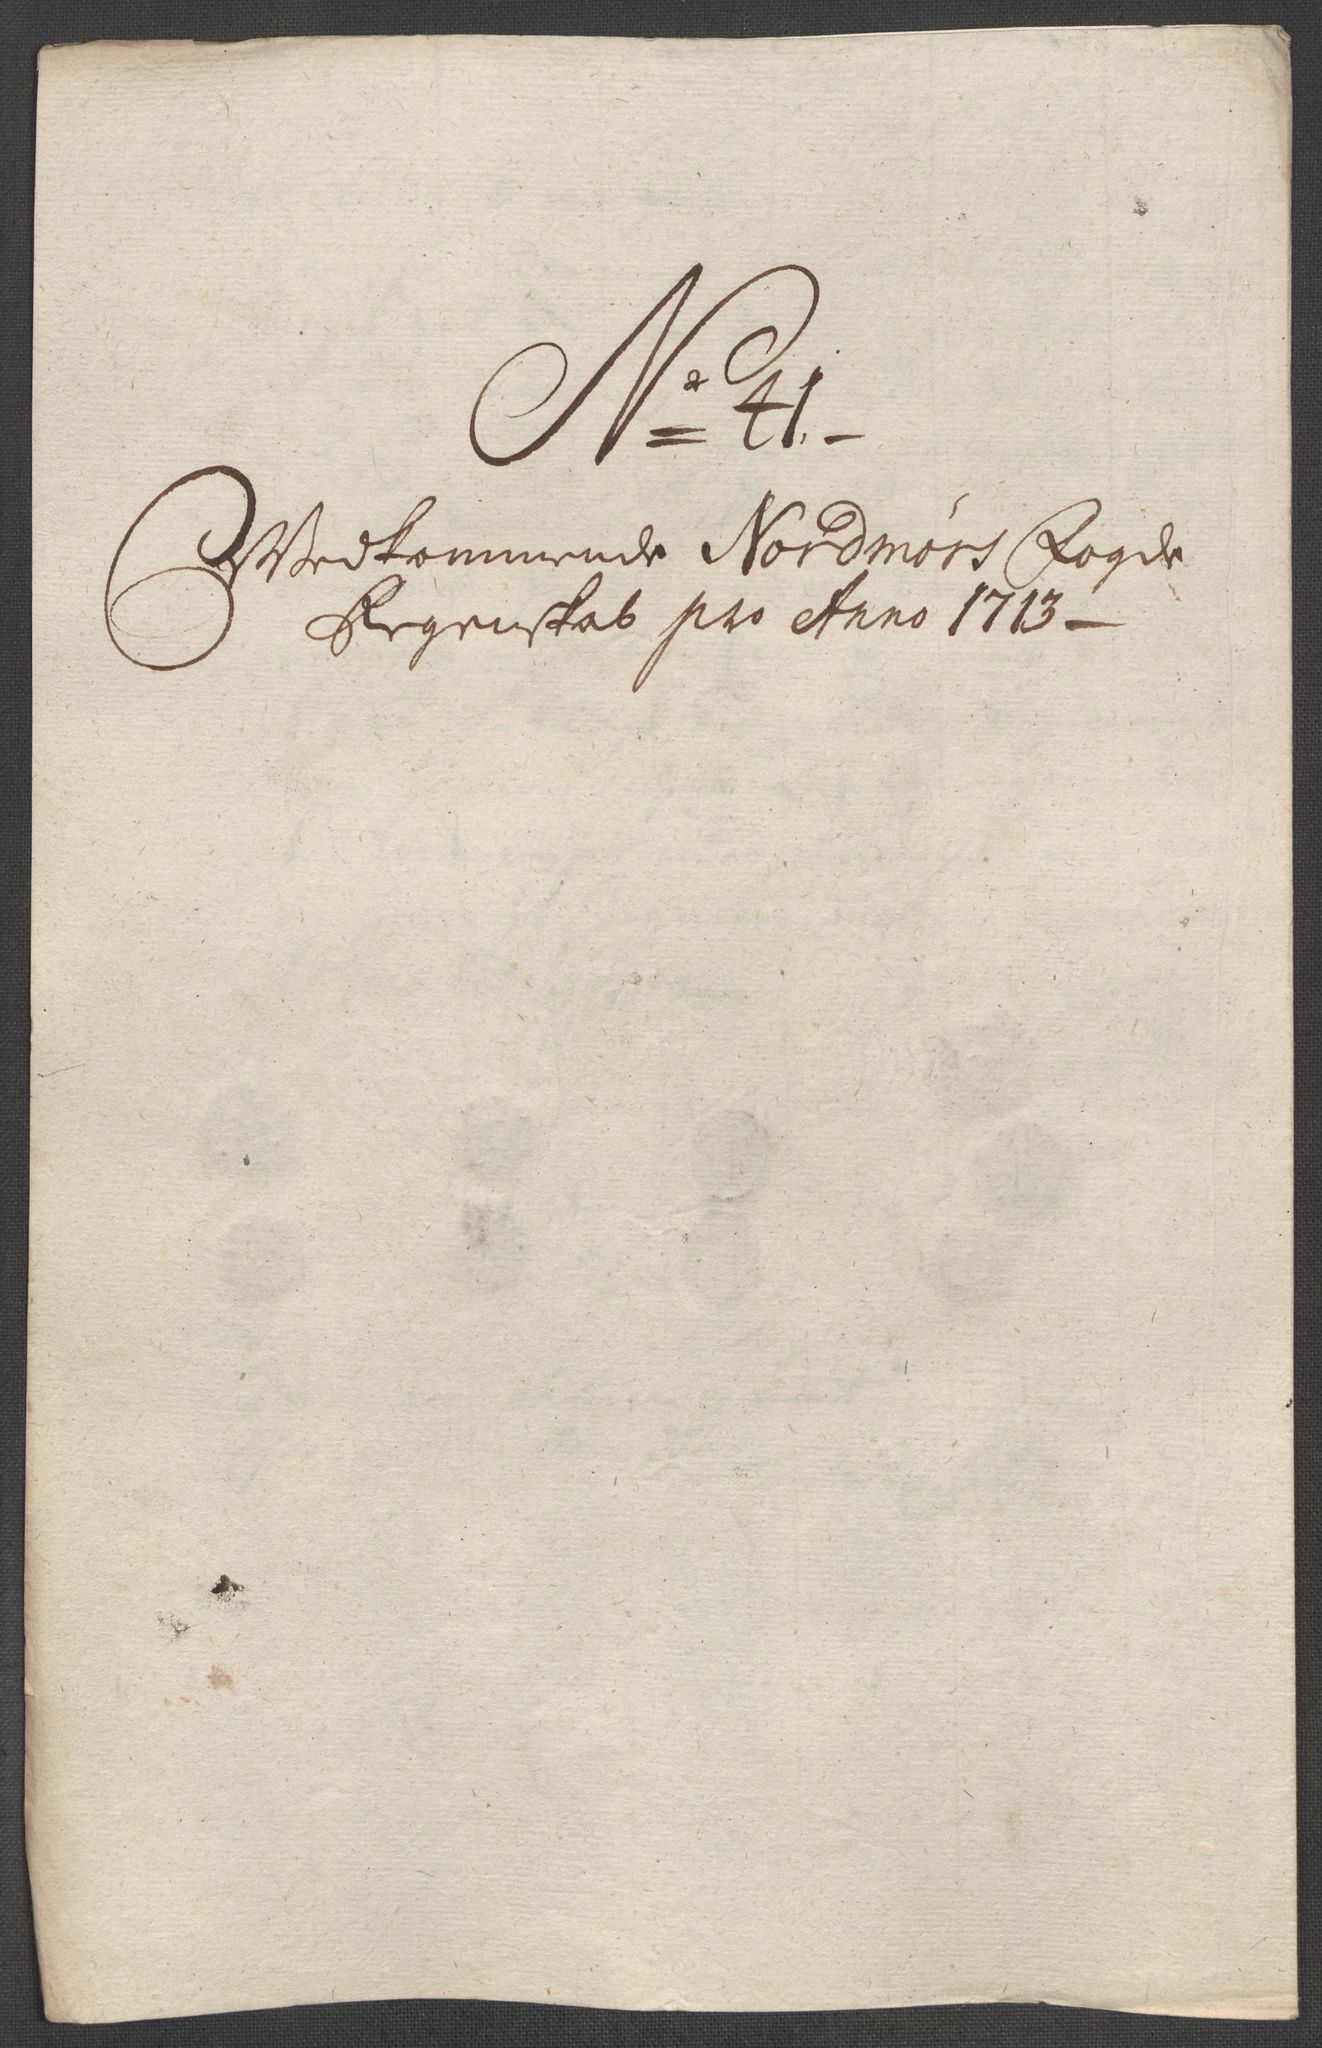 No 41.
Vedkommende Nordmørs Fogde
Regenskab pro Anno 1713